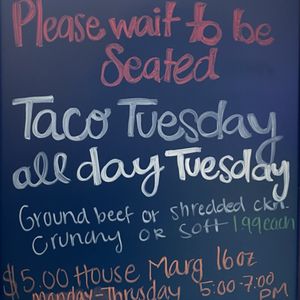 Please wait to be
Seated
Taco Tuesday
all day Tuesday
Ground beef or shredded ckn.
Crunchy OR Soft 1.99 each
$5.00 House Marg 16oz
monday-Thrusday 5:00-7:00
PM